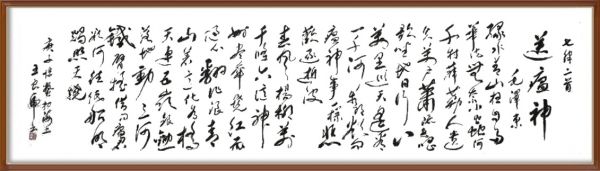 七律二首
送瘟神
毛泽东
绿水青山枉自多
华佗无奈小虫何
千村薜荔人遗
矢万户萧疏鬼唱
歌坐地日行八
万里巡天遥看
一千河牛郎欲问
瘟神事一样悲
欢逐逝波
春风杨柳万
千条六亿神
州尽舜尧红雨
随心翻作浪青
山着意化为桥
天连五岭银锄
落地动三河
铁臂摇借问瘟君
欲何往纸船明
烛照天烧
庚子